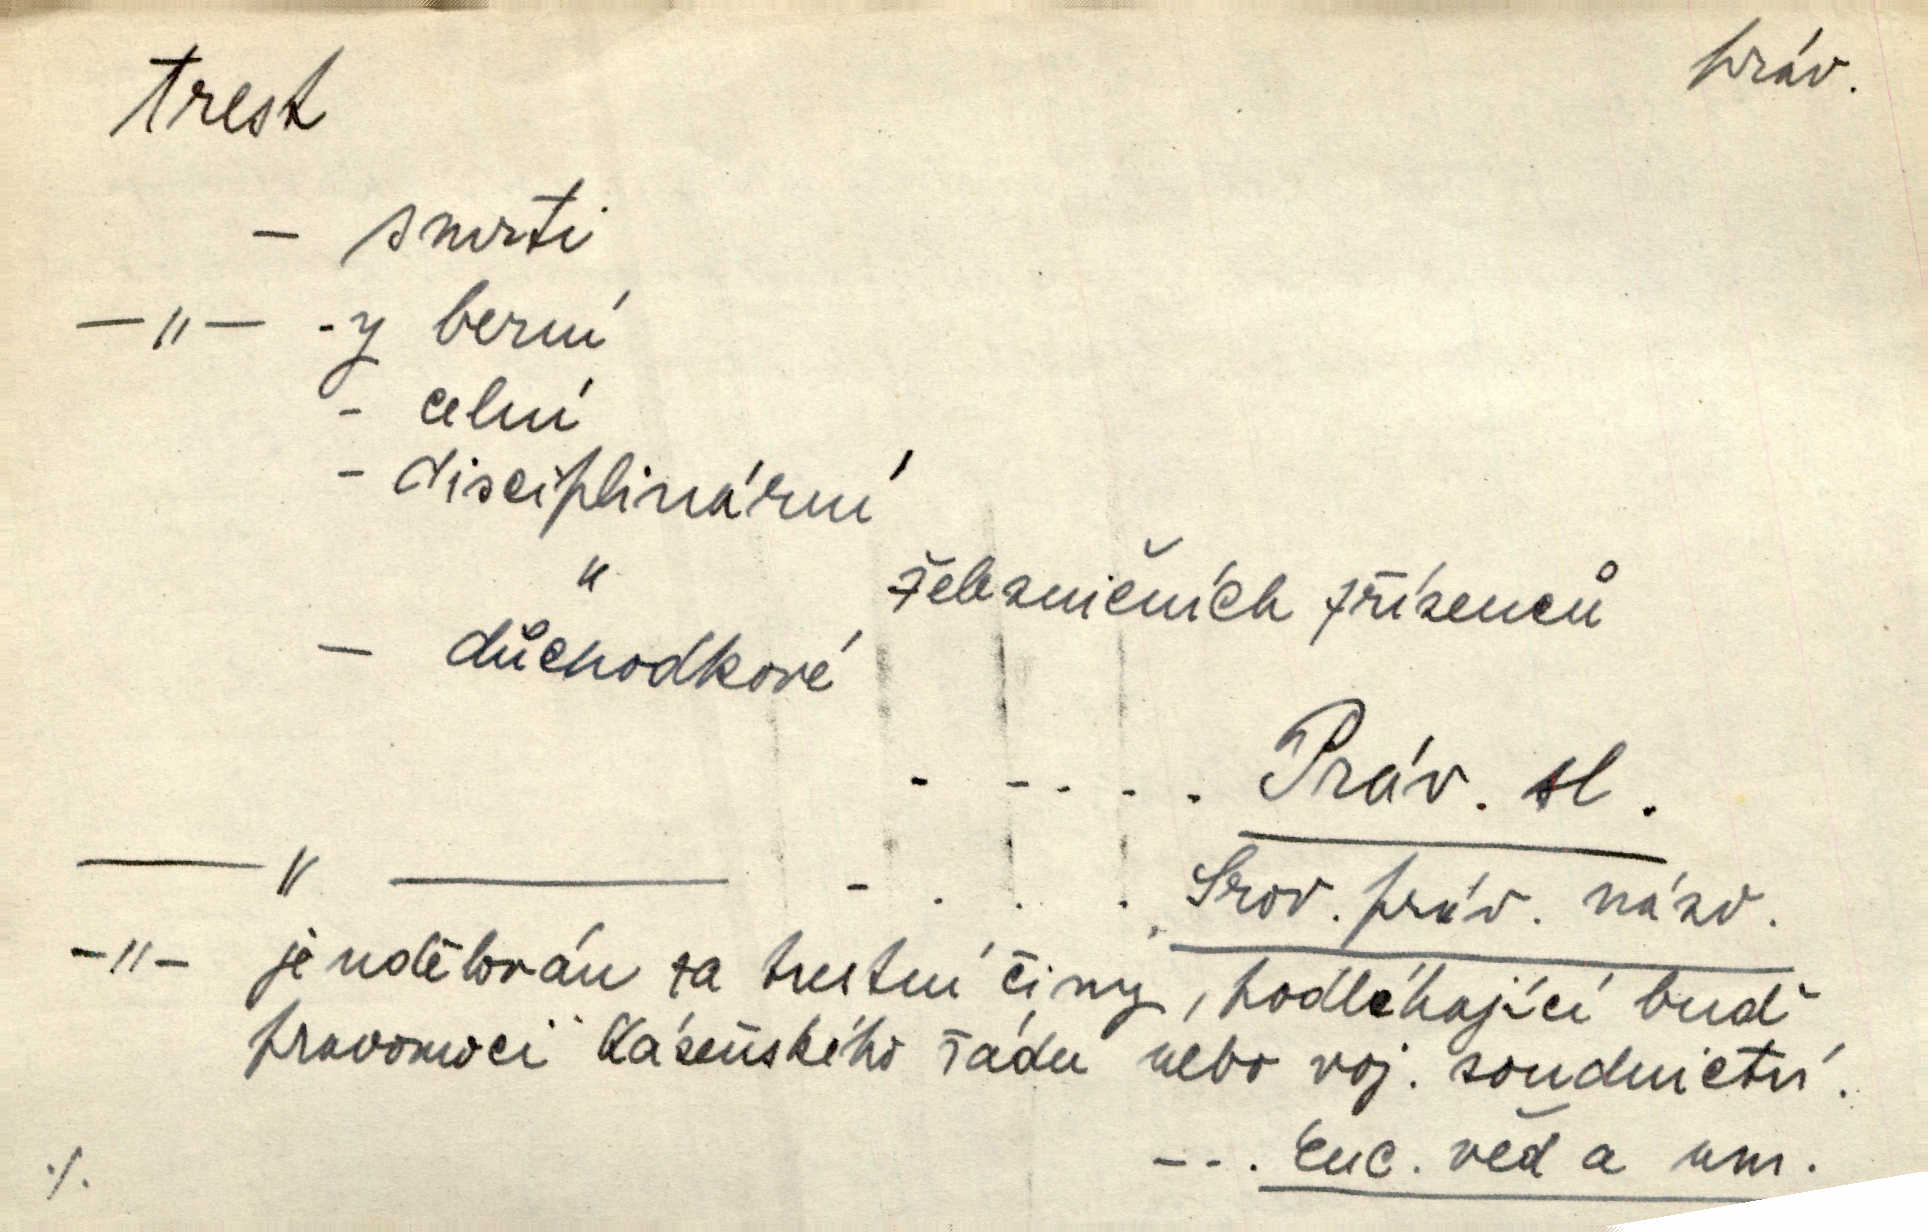 práv.
trest
— smrti
—"— -y berní
- celní
- disciplinární
" železničních zřízenců
— důchodkové
- - - - - . Práv. sl.
—— " —— - . . . . Srov. práv. názv.
—"— je udělován za trestní činy, podléhající buď
pravomoci kázeňského řádu nebo voj. soudnictví.
- - . Enc. věd a um.
./.